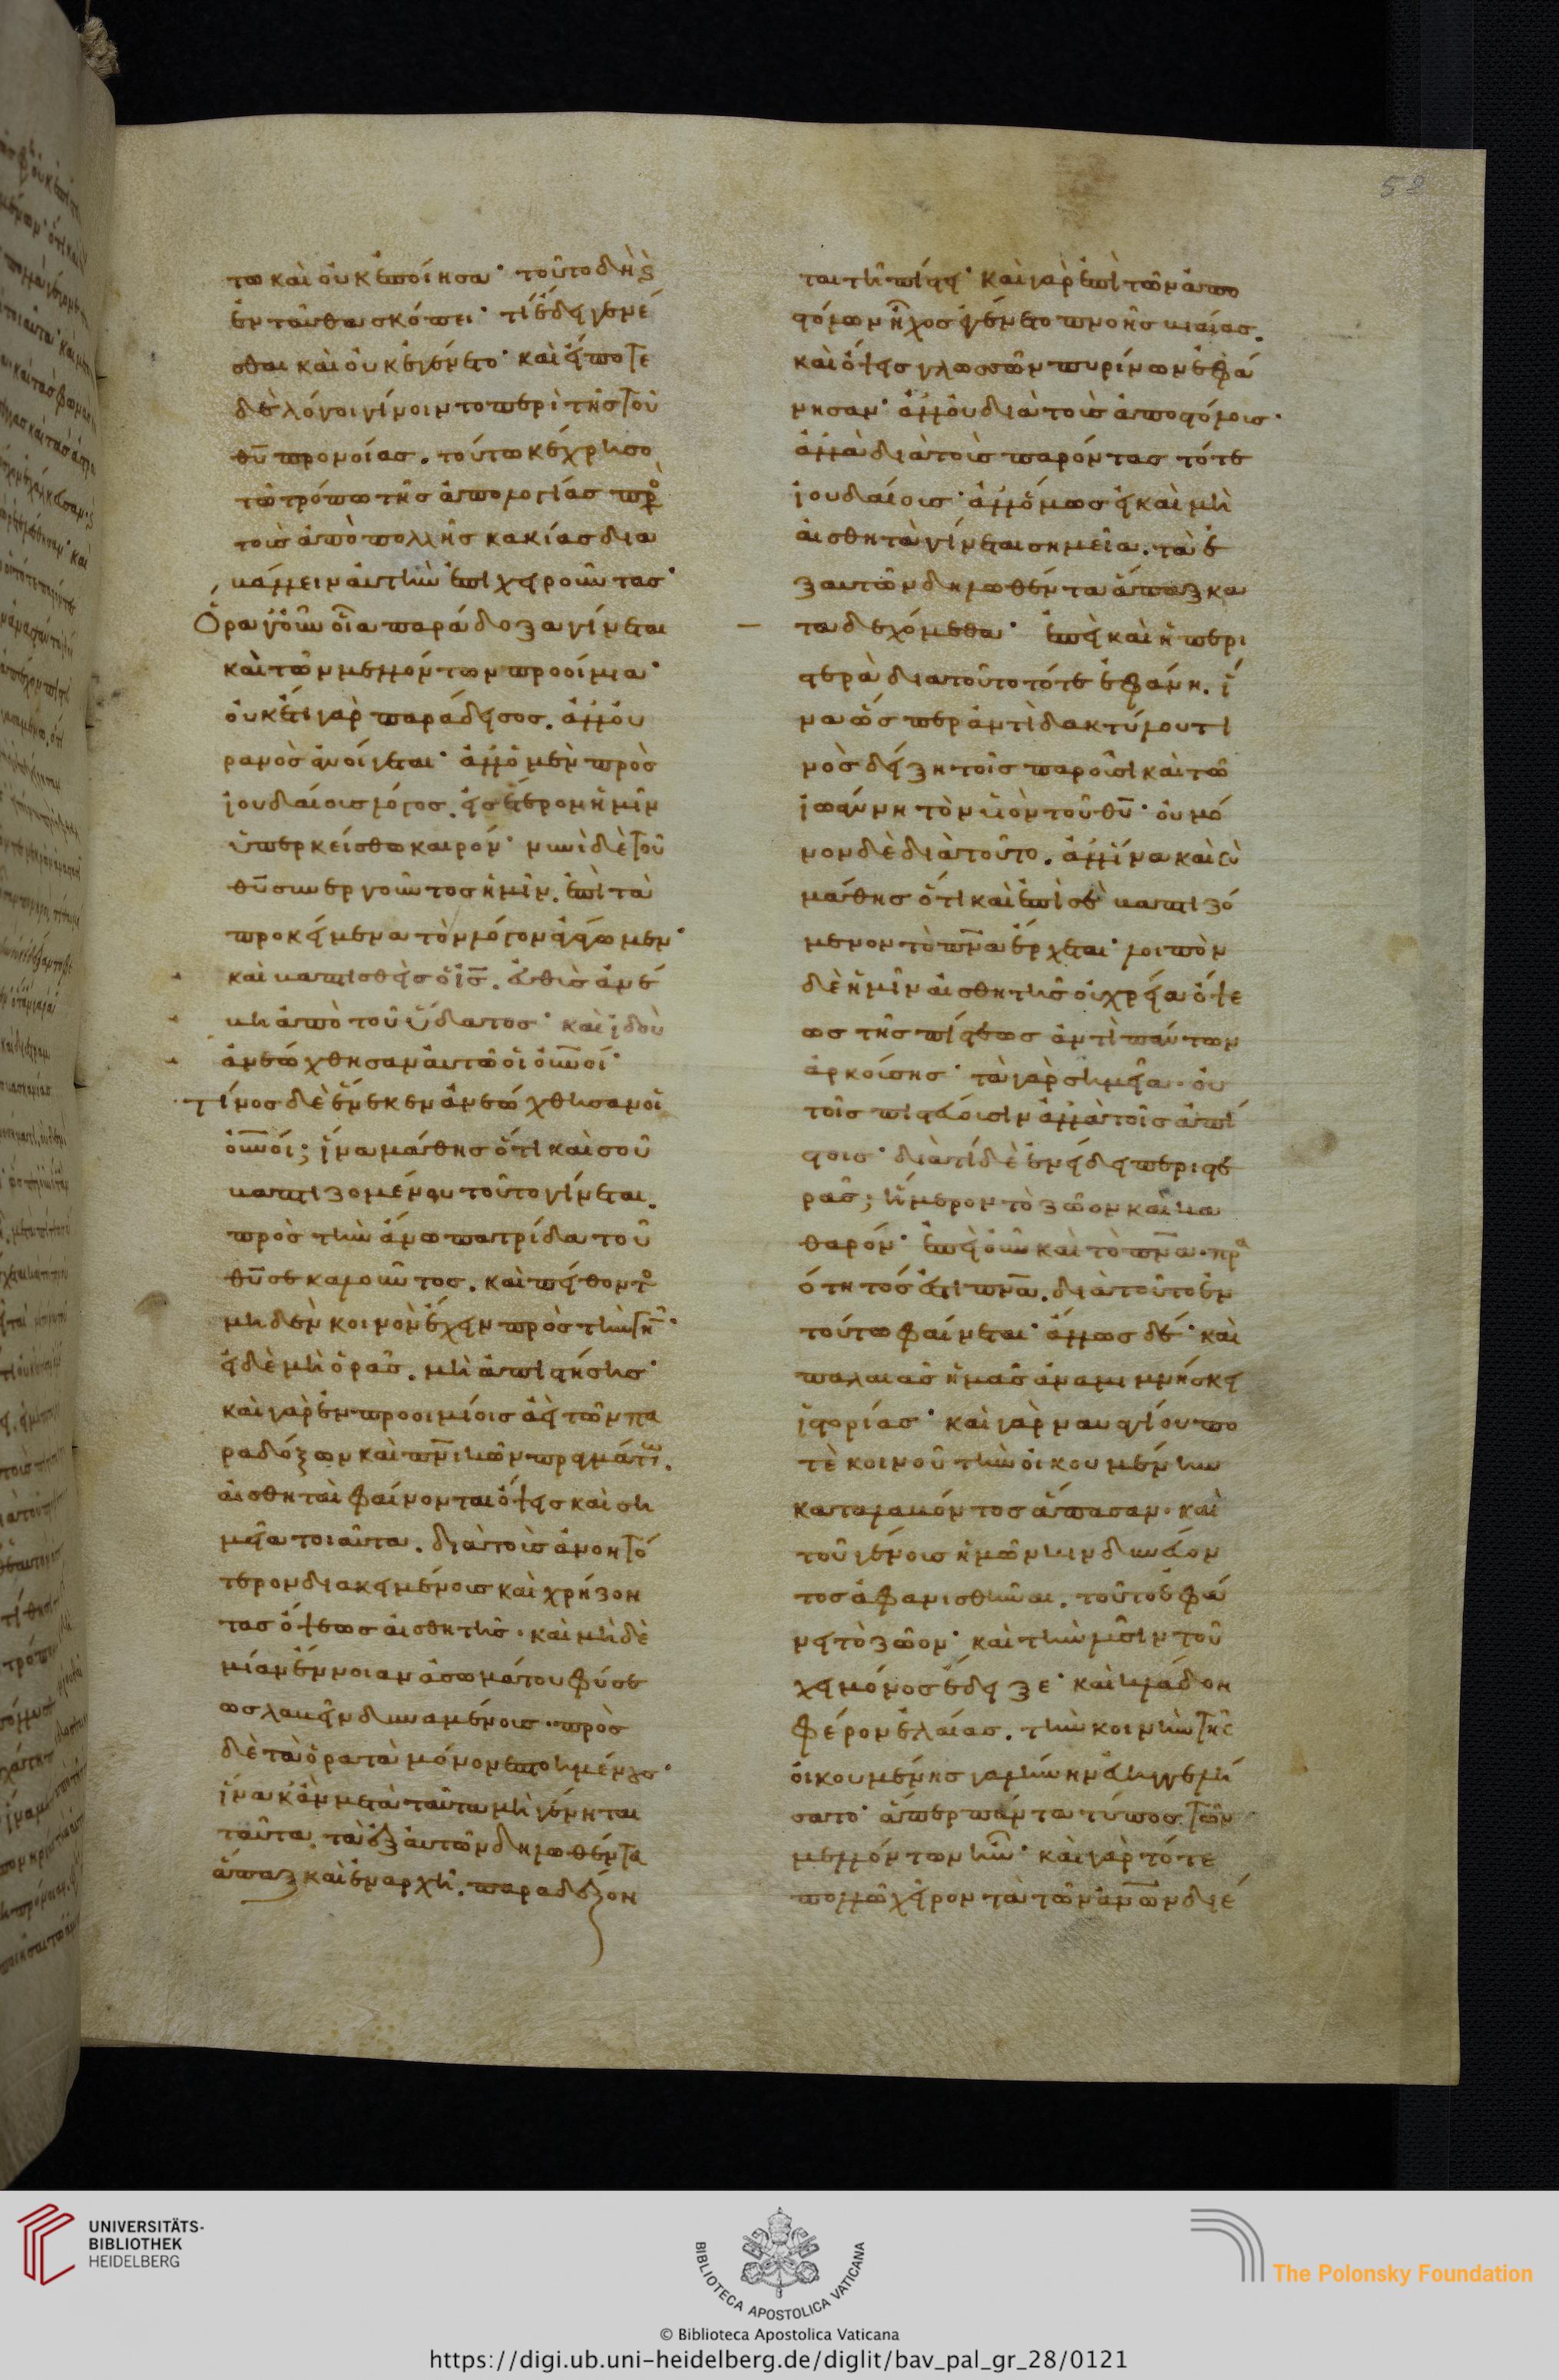 58
τω καὶ οὐκ ἐποίησα· τοῦτο δὴ καὶ
ἐνταῦθα σκόπει· τί ἔδει γενέ
σθαι καὶ οὐκ ἐγένετο· καὶ εἴποτε
δὲ λόγοι γίνοιντο περὶ τῆς τοῦ
θυ προνοίας. τούτω κέχρησο
τῶ τρόπω τῆς ἀπολογίας πρὸ
τοὺς ἀπὸ πολλῆς κακίας δια
βάλλειν αὐτὴν ἐπιχειροῦντας·
Ὅρα γοῦν οἷα παράδοξα γίνεται
καὶ τῶν μελλόντων προοίμια·
οὐκέτι γὰρ παράδεισος. ἀλλ' οὐ
ρανὸς ἀνοίγεται· ἀλλ' ὁ μὲν πρὸς
ἰουδαίους λόγος. εἰς ἕτερον ἡμῖν
ὑπερκείσθω καιρόν· νυνὶ δὲ τοῦ
θυ συνεργοῦντος ἡμῖν. ἐπὶ τὰ
προκείμενα τὸν λόγον ἄγωμεν·
καὶ βαπτισθεὶς ὁ ις. εὐθὺς ἀνέ
βη ἀπὸ τοῦ ὕδατος· καὶ ἰδοὺ
ἀνεώχθησαν αὐτῶ οἱ οὐνοί·
τίνος δὲ ἕνεκεν ἀνεώχθησαν οἱ
οὐνοί; ἵνα μάθης ὅτι καὶ σοῦ
βαπτιζομένου τοῦτο γίνεται.
πρὸς τὴν ἄνω πατρίδα τοῦ
θυ σε καλοῦντος. καὶ πείθοντο
μηδὲν κοινὸν ἔχειν πρὸς τὴν γῆν·
εἰ δὲ μὴ ὁρᾶς. μὴ ἀπιστήσης·
καὶ γὰρ ἐν προοιμίοις ἀεὶ τῶν πα
ραδόξων καὶ πνικῶν πραγμάτων.
αἰσθηταὶ φαίνονται ὄψεις καὶ ση
μεῖα τοιαῦτα. διὰ τοὺς ἀνοητό
τερον διακειμένους καὶ χρήζον
τας ὄψεως αἰσθητῆς. καὶ μηδὲ
μίαν ἔννοιαν ἀσωμάτου φύσε
ως λαβεῖν δυναμένους. πρὸς
δὲ τὰ ὁρατὰ μόνον ἐπτοημένους·
ἵνα κἂν μετὰ ταῦτα μὴ γένηται
ταῦτα. τὰ ἐξ αὐτῶν δηλωθέντα
ἅπαξ καὶ ἐν ἀρχῆ. παραδέξον
ται τῆ πίστει· καὶ γὰρ ἐπὶ τῶν ἀπο
στόλων ἦχος ἐγένετο πνοῆς βιαίας.
καὶ ὄψεις γλωσσῶν πυρίνων ἐφά
νησαν· ἀλλ' οὐ διὰ τοὺς ἀποστόλους·
ἀλλὰ διὰ τοὺς παρόντας τότε
ἰουδαίους· ἀλλ' ὅμως εἰ καὶ μὴ
αἰσθητὰ γίνεται σημεῖα. τὰ ἐ
ξ αὐτῶν δηλωθέντα ἅπαξ κα
ταδεχόμεθα· ἐπεὶ καὶ ἡ περι
στερὰ διατοῦτο τότε ἐφάνη. ἵ
να ὥσπερ ἀντὶ δακτύλου τι
νὸς δείξη τοῖς παροῦσι καὶ τῶ
ἰωάννη τὸν υἱὸν τοῦ θυ· οὐ μό
νον δὲ διατοῦτο. ἀλλ' ἵνα καὶ σὺ
μάθης ὅτι καὶ ἐπὶ σὲ βαπτιζό
μενον τὸ πνα ἔρχεται· λοιπὸν
δὲ ἡμῖν αἰσθητῆς οὐ χρεία ὄψε
ως τῆς πίστεως ἀντὶ πάντων
ἀρκούσης· τὰ γὰρ σημεῖα. οὐ
τοῖς πιστεύουσιν ἀλλὰ τοῖς ἀπί
στοις· διὰτί δὲ ἐν εἴδει περιστε
ρᾶς; ἥμερον τὸ ζῶον καὶ κα
θαρόν· ἐπεὶ οὖν καὶ τὸ πνα. πρα
ότητός ἐστι πνα. διατοῦτο ἐν
τούτω φαίνεται· ἄλλως δέ· καὶ
παλαιᾶς ἡμᾶς ἀναμιμνήσκει
ἱστορίας· καὶ γὰρ ναυαγίου πο
τὲ κοινοῦ τὴν οἰκουμένην
καταλαβόντος ἅπασαν. καὶ
τοῦ γένους ἡμῶν κινδυνεύον
τος ἀφανισθῆναι. τοῦτο ἐφά
νη τὸ ζῶον· καὶ τὴν λύσιν τοῦ
χειμῶνος ἔδειξε· καὶ κλάδον
φέρον ἐλαίας. τὴν κοινὴν τῆς
οἰκουμένης γαλήνην εὐηγγελί
σατο· ἅπερ πάντα τύπος τῶν
μελλόντων ἦν· καὶ γὰρ τότε
πολλῶ χεῖρον τὰ τῶν ἀνων διέ
UNIVERSITÄTS-
BIBLIOTHEK
HEIDELBERG
BIBLIOTECA APOSTOLICA VATICANA
The Polonsky Foundation
© Biblioteca Apostolica Vaticana
https://digi.ub.uni-heidelberg.de/diglit/bav_pal_gr_28/0121